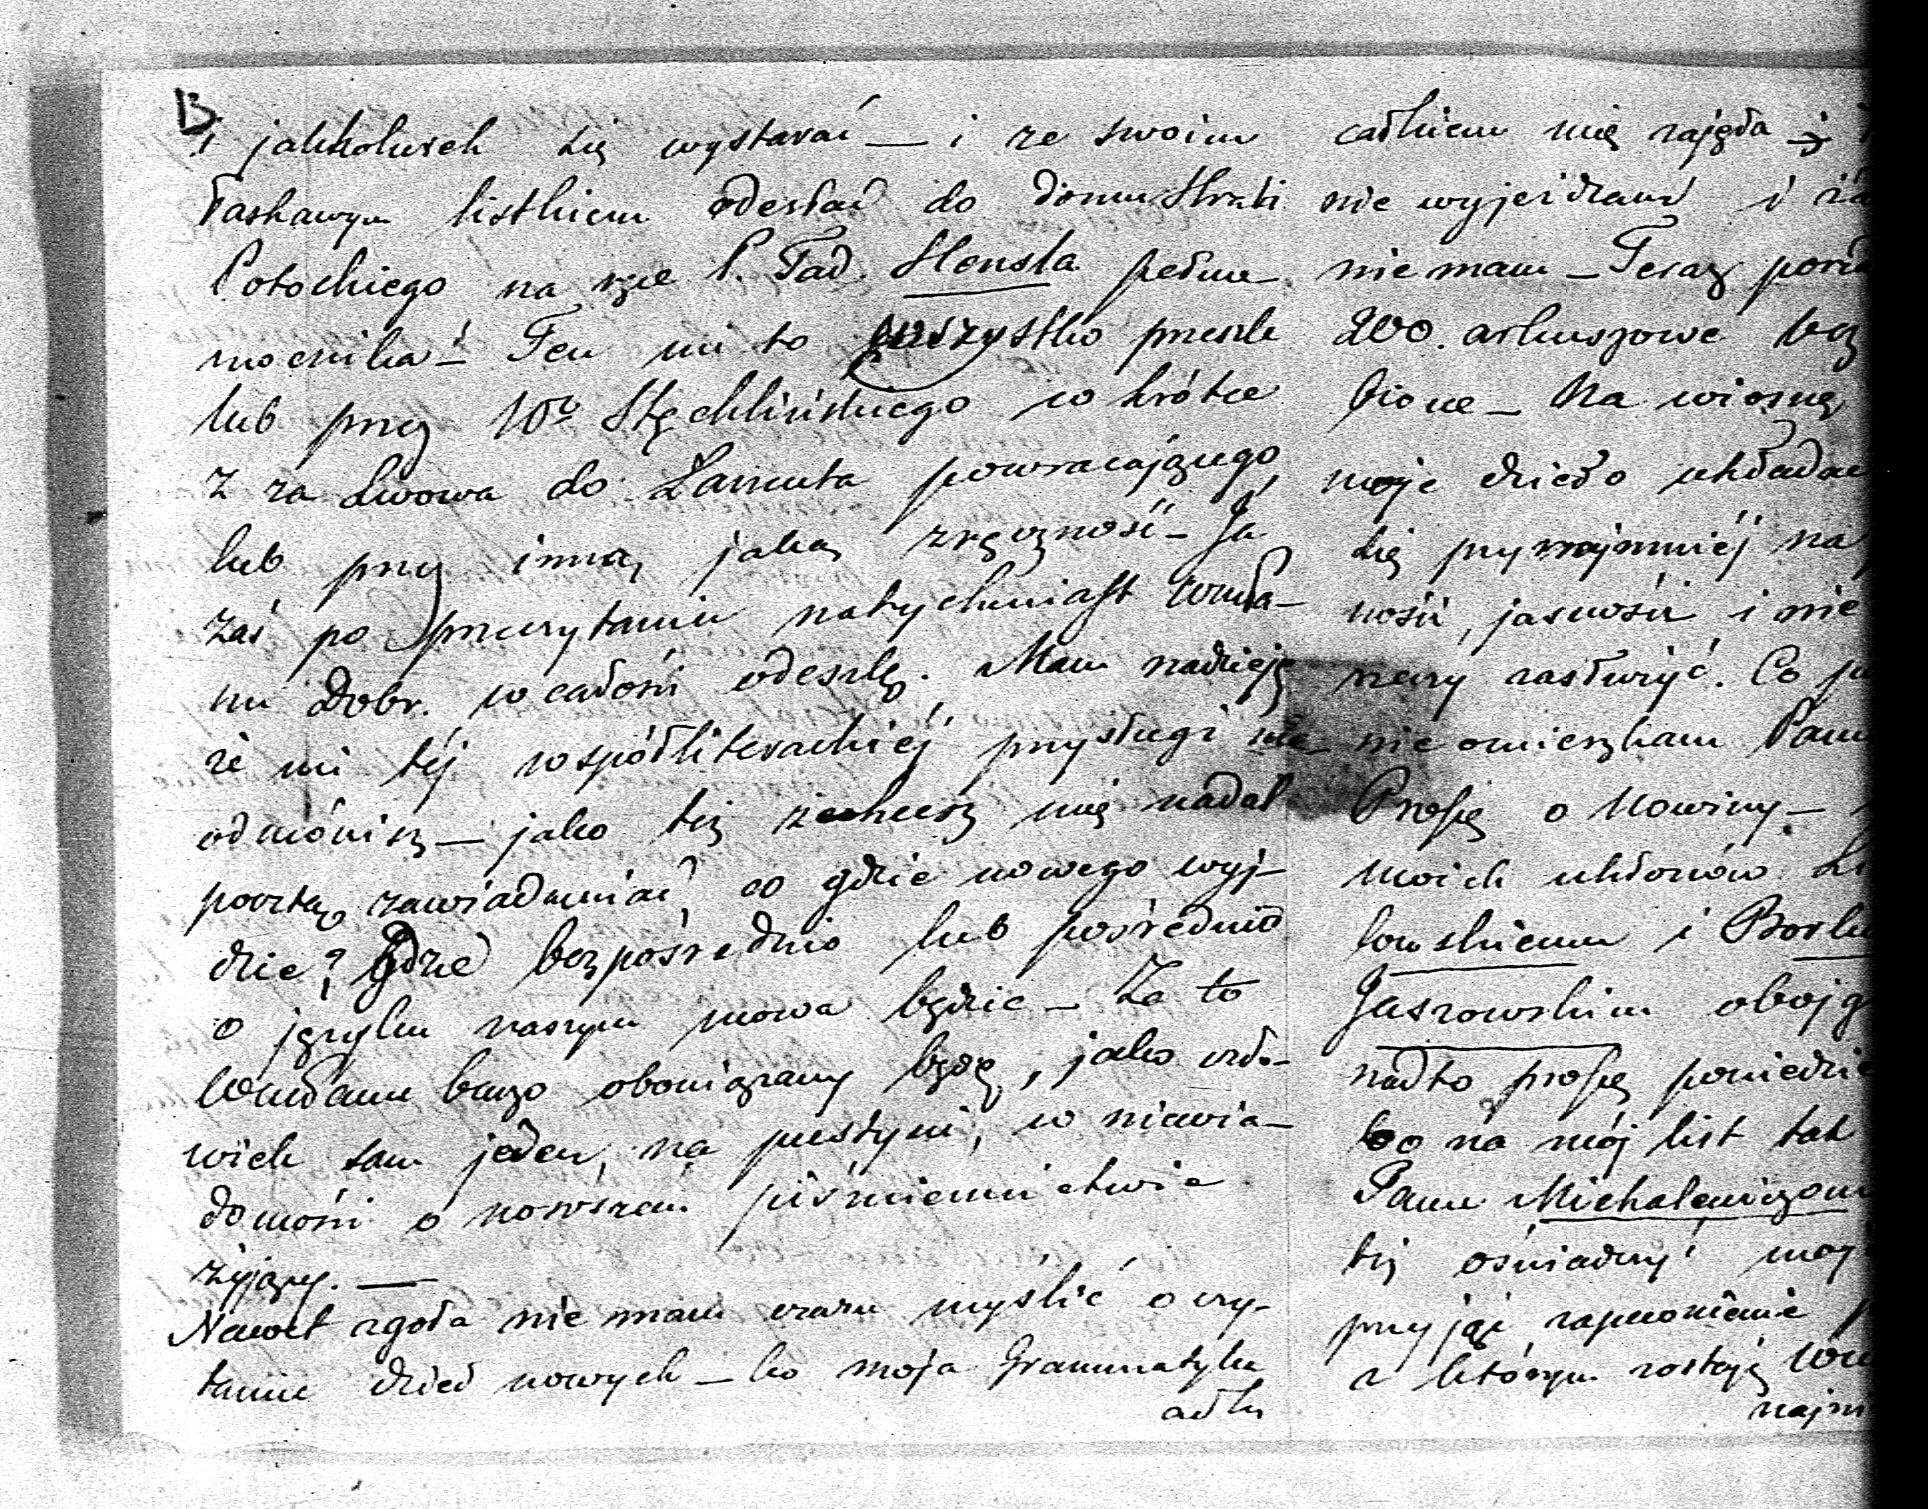 13.
i jakkolwiek się wystarać — i ze swoim
łaskawym listkiem odesłać do domu Hrabi
Potockiego na ręce P. Tad. Honsla pełno-
mocnika — Ten mi to wszystko prześle
lub przy Wo Stęchlińskiego w krótce
z za Lwowa do Łańcuta powracającego,
lub przy inną jaką zręczność — Ja
zaś po przeczytaniu natychmiast WMPa-
nu Dobr. w całości odeszlę. Mam nadzieję
że mi téj współliterackiéj przysługi nie
odmówisz — jako też zechcesz mię nadal
pocztą zawiadamiać co gdzie nowego wyj-
dzie? gdzie bezpośrednio lub pośrednio
o języku naszym mowa będzie — Za to
bardzo obowiązany będę, jako czło-
wiek sam jeden, na pustyni, w niewia-
domości o nowszem piśmiennictwie
żyjący. —
Nawet zgoła nie mam czasu myślić o czy-
taniu dzieł nowych — bo moja Grammatyka
całkiem mię zajęła
nie wyjeżdzam i
nie mam — Teraz
200. arkuszowe
bione — Na wiosnę
moje dzieło układać
się przynajmniéj na
ności, jasności i nie
rzeczy zasłużyć. Co
nie omieszkam Panu
Proszę o Nowiny —
moich ukłonów
łowskiemu i
Jaszowskim
nadto proszę
bo na mój list tak
Panu Michalewiczowi
też oświadczyć
przyjąć zapewnienie
z którym zostaję